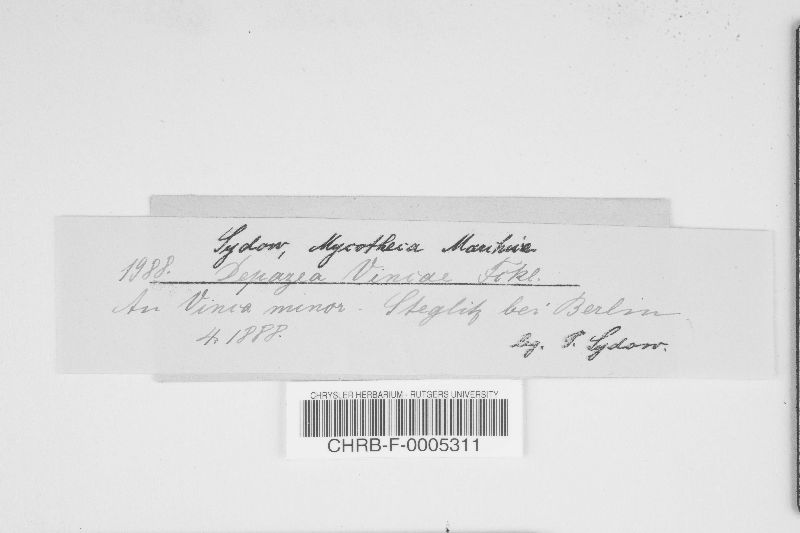 Sydow, Mycotheca Marchica
1988. Depazea Vincae Fckl.
An Vinca minor. Steglitz bei Berlin.
4. 1888.
leg. P. Sydow.
CHRYSLER HERBARIUM - RUTGERS UNIVERSITY
CHRB-F-0005311